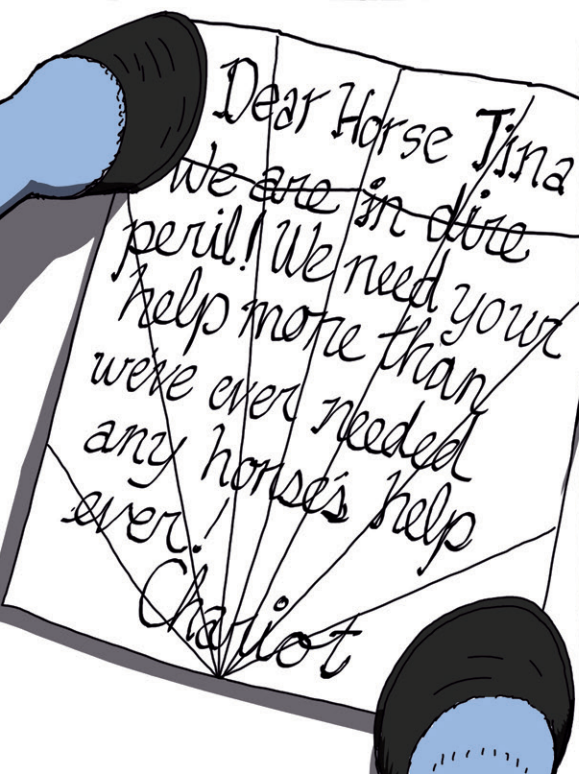 Dear Horse Tina
We are in dire
peril! We need your
help more than
we've ever needed
any horse's help
ever!
Chariot